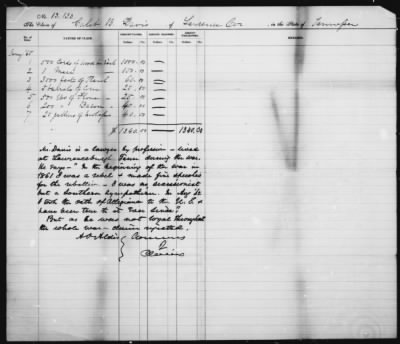 No. 13,133
The Claim of Caleb B. Davis of Lawrence Co. in the State of Tennessee
No. of Item. NATURE OF CLAIM. AMOUNT CLAIMED. AMOUNT ALLOWED. AMOUNT DISALLOWED. REMARKS.
Dollars. Cts. Dollars. Cts. Dollars. Cts.
1 1000 cords of wood 1000.00
2 1 Mare 100.00
3 3000 feet of Plank 60.00
4 5 barrels of Corn 25.00
5 500 lbs of Flour 25.00
6 200 " Bacon 40.00
7 20 gallons of 40.00
$ 1340.00 1340.00
Mr. Davis is a lawyer by profession — lived
at Lawrenceburgh Tenn during the war.
He says— "In the beginning of the war in
1861 I was a rebel & made five speeches
for the rebellion — I was no secessionist
but a Southern sympathizer. In Aug 62
I took the oath of Allegiance to the U.S. &
have been true to it ever since."
But as he was not loyal throughout
the whole war — claim rejected.
A.O. Aldis
Commrs
of
Claims